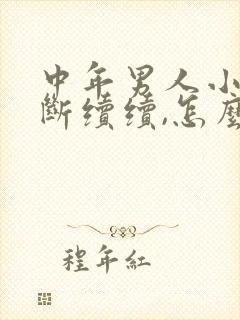 中年男人小
斷續續,怎麼
程年紅